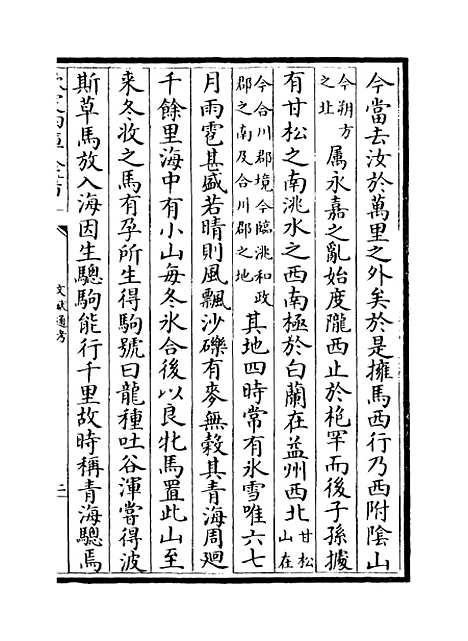 今當去汝於萬里之外矣於是擁馬西行乃西附陰山
今朔方之北屬永嘉之亂始度隴西止於枹罕而後子孫據
有甘松之南洮水之西南極於白蘭在益州西北甘松山在
今合川郡境今臨洮和政郡之南及合川郡之地其地四時常有氷雪唯六七
月雨雹甚盛若晴則風飄沙礫有麥無穀其青海周廻
千餘里海中有小山每冬氷合後以良牝馬置此山至
来冬收之馬有孕所生得駒號曰龍種吐谷渾嘗得波
斯草馬放入海因生驄駒能行千里故時稱青海驄焉
文献通考
二